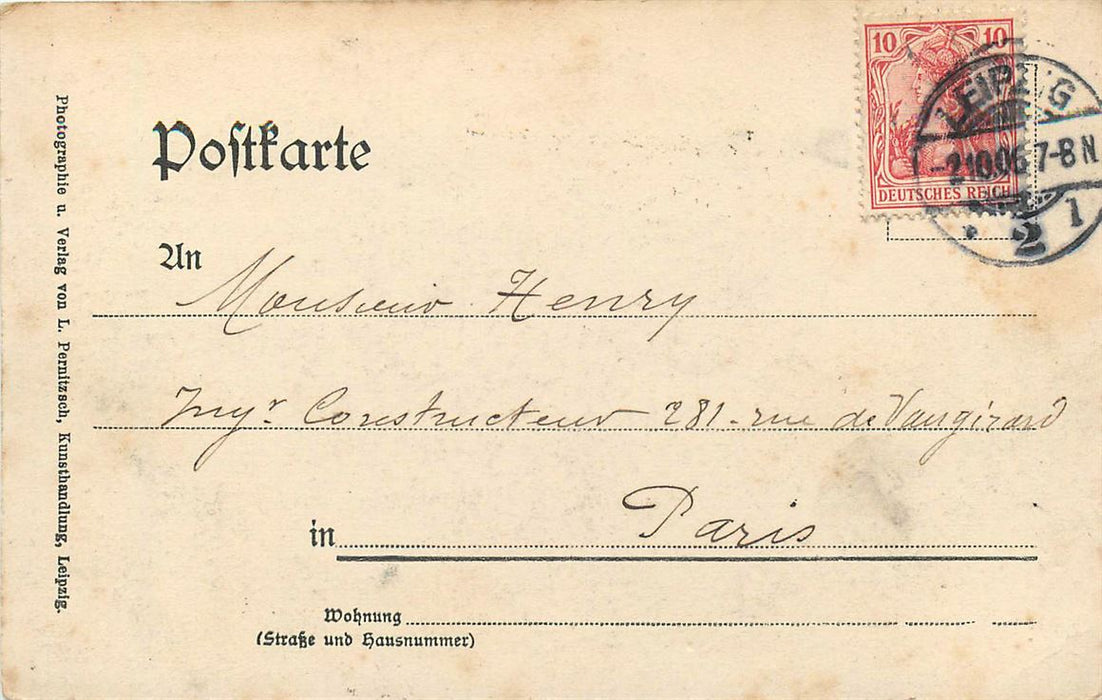 10 10
DEUTSCHES REICH
LEIPZIG
-2.10.06 7-8 N
* 2 1
Poſtkarte
An
Monsieur Henry
Ingr Constructeur 281 - rue de Vaugirard
in Paris
Wohnung
(Straße und Hausnummer)
Photographie u. Verlag von L. Pernitzsch, Kunsthandlung, Leipzig.